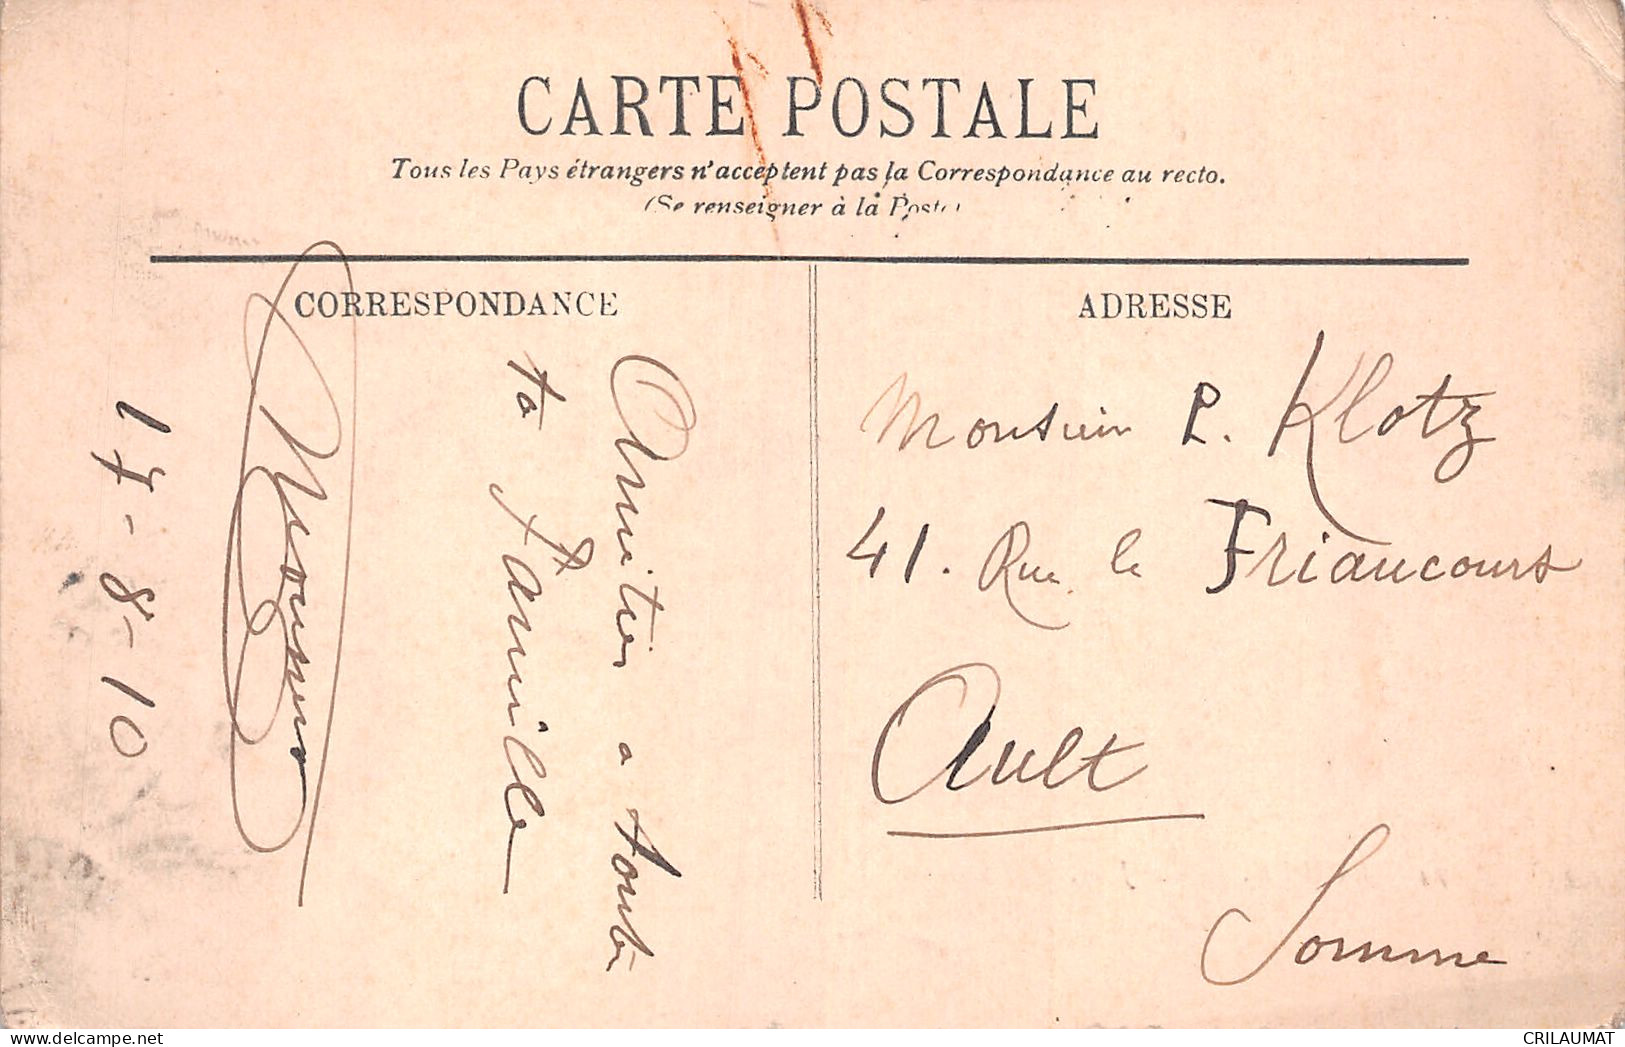 CARTE POSTALE
Tous les Pays étrangers n'acceptent pas la Correspondance au recto.
(Se renseigner à la Poste)
CORRESPONDANCE
Amitiés a toute
ta Famille
17-8-10
ADRESSE
Monsieur P. Klotz
41. Rue de Friaucourt
Ault
Somme
CRILAUMAT